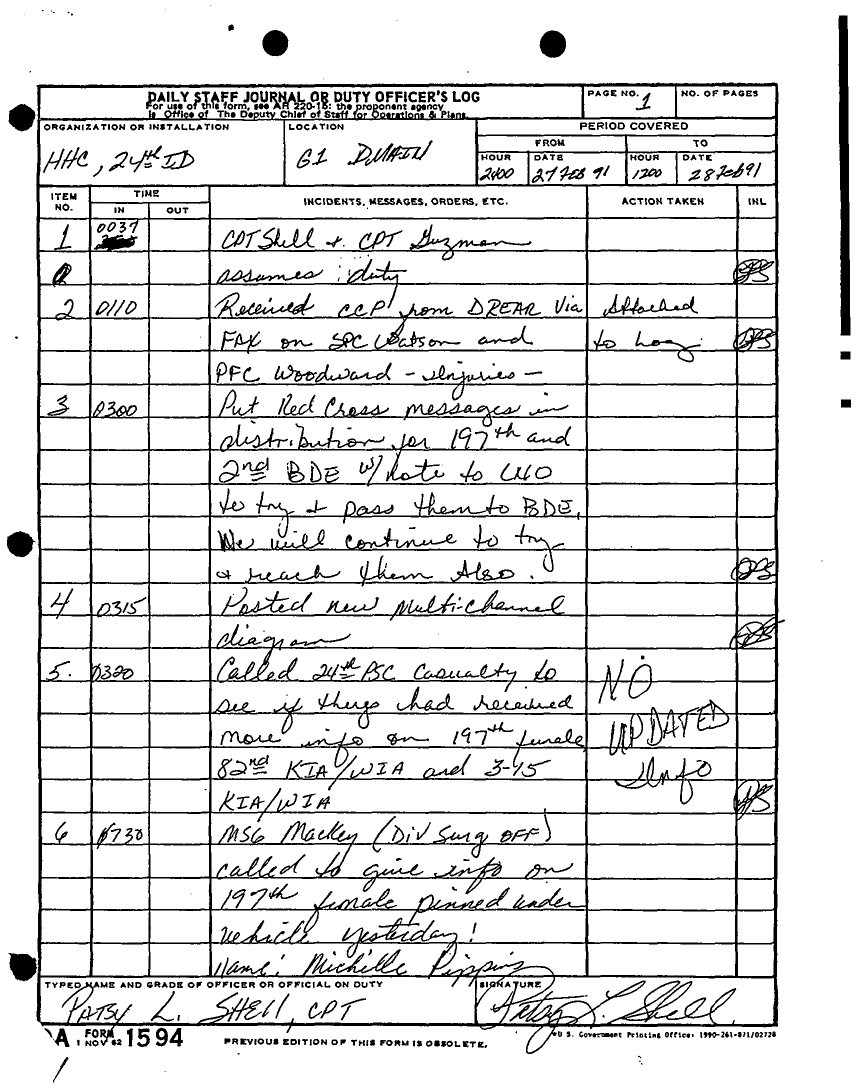 DAILY STAFF JOURNAL OR DUTY OFFICER'S LOG
For use of this form, see AR 220-15: the proponent agency
is Office of The Deputy Chief of Staff for Operations & Plans.
PAGE NO. 1
NO. OF PAGES
ORGANIZATION OR INSTALLATION
HHC, 24th ID
LOCATION
G1 DMAIN
PERIOD COVERED
FROM
TO
HOUR
2400
DATE
27 Feb 91
HOUR
1200
DATE
28 Feb 91
ITEM NO.
TIME
IN
OUT
INCIDENTS, MESSAGES, ORDERS, ETC.
ACTION TAKEN
INL
1 0037 CPT Shell + CPT Guzman
assumes duty
2 0110 Received CCP from DREAR Via Attached
FAX on SPC Watson and to Log.
PFC Woodward - Injuries -
3 0300 Put Red Cross messages in
distribution for 197th and
2nd BDE w/note to LNO
to try + pass them to BDE.
We will continue to try
+ reach them Also.
4 0315 Posted new Multi-channel
diagram
5. 0320 Called 24th PSC Casualty to NO
see if they had received
more info on 197th female, UPDATED
82nd KIA/WIA and 3-15 Info
KIA/WIA
6 0730 MSG Mackey (Div Surg OFF)
called to give info on
197th female pinned under
vehicle yesterday!
Name: Michille
TYPED NAME AND GRADE OF OFFICER OR OFFICIAL ON DUTY
PATSY L. SHEll, CPT
SIGNATURE
Patsy L. Shell
DA FORM 1594
1 NOV 62
PREVIOUS EDITION OF THIS FORM IS OBSOLETE.
U.S. Government Printing Office: 1990-261-871/02728